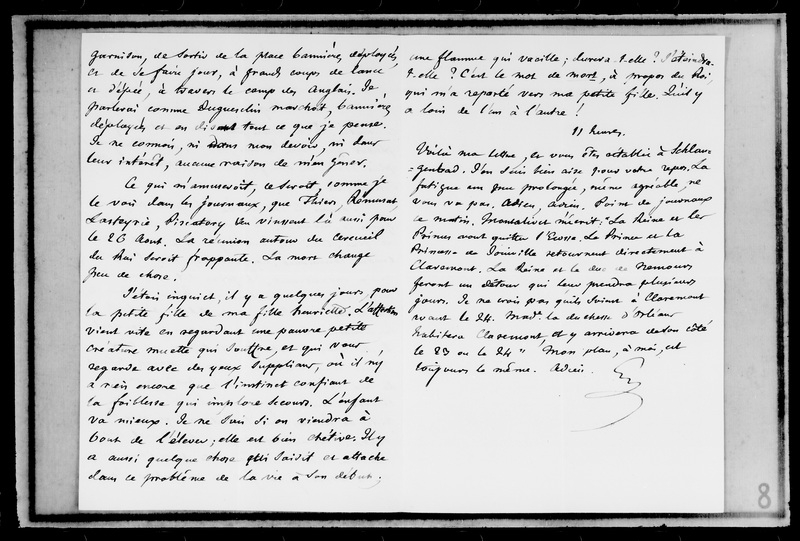 garnison, de sortir de la place bannières déployées,
et de se faire jour, à grands coups de lance
et d'épée, à travers le camp des Anglais. Je
parlerai comme Duguesclin marchait, bannières
déployées et en disant tout ce que je pense.
Je ne connois, ni dans mon devoir, ni dans
leur intérêt, aucune raison de m'en gêner.
Ce qui m'amuseroit, ce seroit, comme je
le vois dans les journaux, que Thiers, Rémusat
Lasteyrie, Piscatory &n vinssent là aussi pour
le 26 Aout. La réunion autour du cercueil
du Roi seroit frappante. La mort change
peu de chose.
J'étois inquiet, il y a quelques jours, pour
la petite fille de ma fille henriette. L'affection
vient vite en regardant une pauvre petite
créature muette qui souffre, et qui vous
regarde avec des yeux suppliants, où il n'y
a rien encore que l'instinct confiant de
la faiblesse qui implore secours. L'enfant
va mieux. Je ne sais si on viendra à
bout de l'élever; elle est bien chétive. Il y
a aussi quelque chose qui saisit et attache
dans ce problême de la vie à son début;
une flamme qui vacille; durera-t-elle? S'éteindra-
t-elle? C'est le mot de mort, à propos du Roi,
qui m'a reporté vers ma petite fille. Qu'il y
a loin de l'un à l'autre!
11 heures.
Voilà ma lettre, et vous êtes établie à Schlan=
=genbad. J'en suis bien aise pour votre repos. La
fatigue un peu prolongée, même agréable, ne
vous va pas. Adieu, Adieu. Point de journaux
ce matin. Montalivet m'écrit: "La Reine et les
Princes vont quitter l'Ecosse. Le Prince et la
Princesse de Joinville retournent directement à
Claremont. La Reine et le duc de Nemours
feront un détour qui leur prendra plusieurs
jours. Je ne crois pas qu'ils soient à Claremont
avant le 24. Mad. la duchesse d'Orléans
habitera Claremont, et y arrivera de son côté
le 23 ou le 24". Mon plan, à moi, est
toujours le même. Adieu.
8